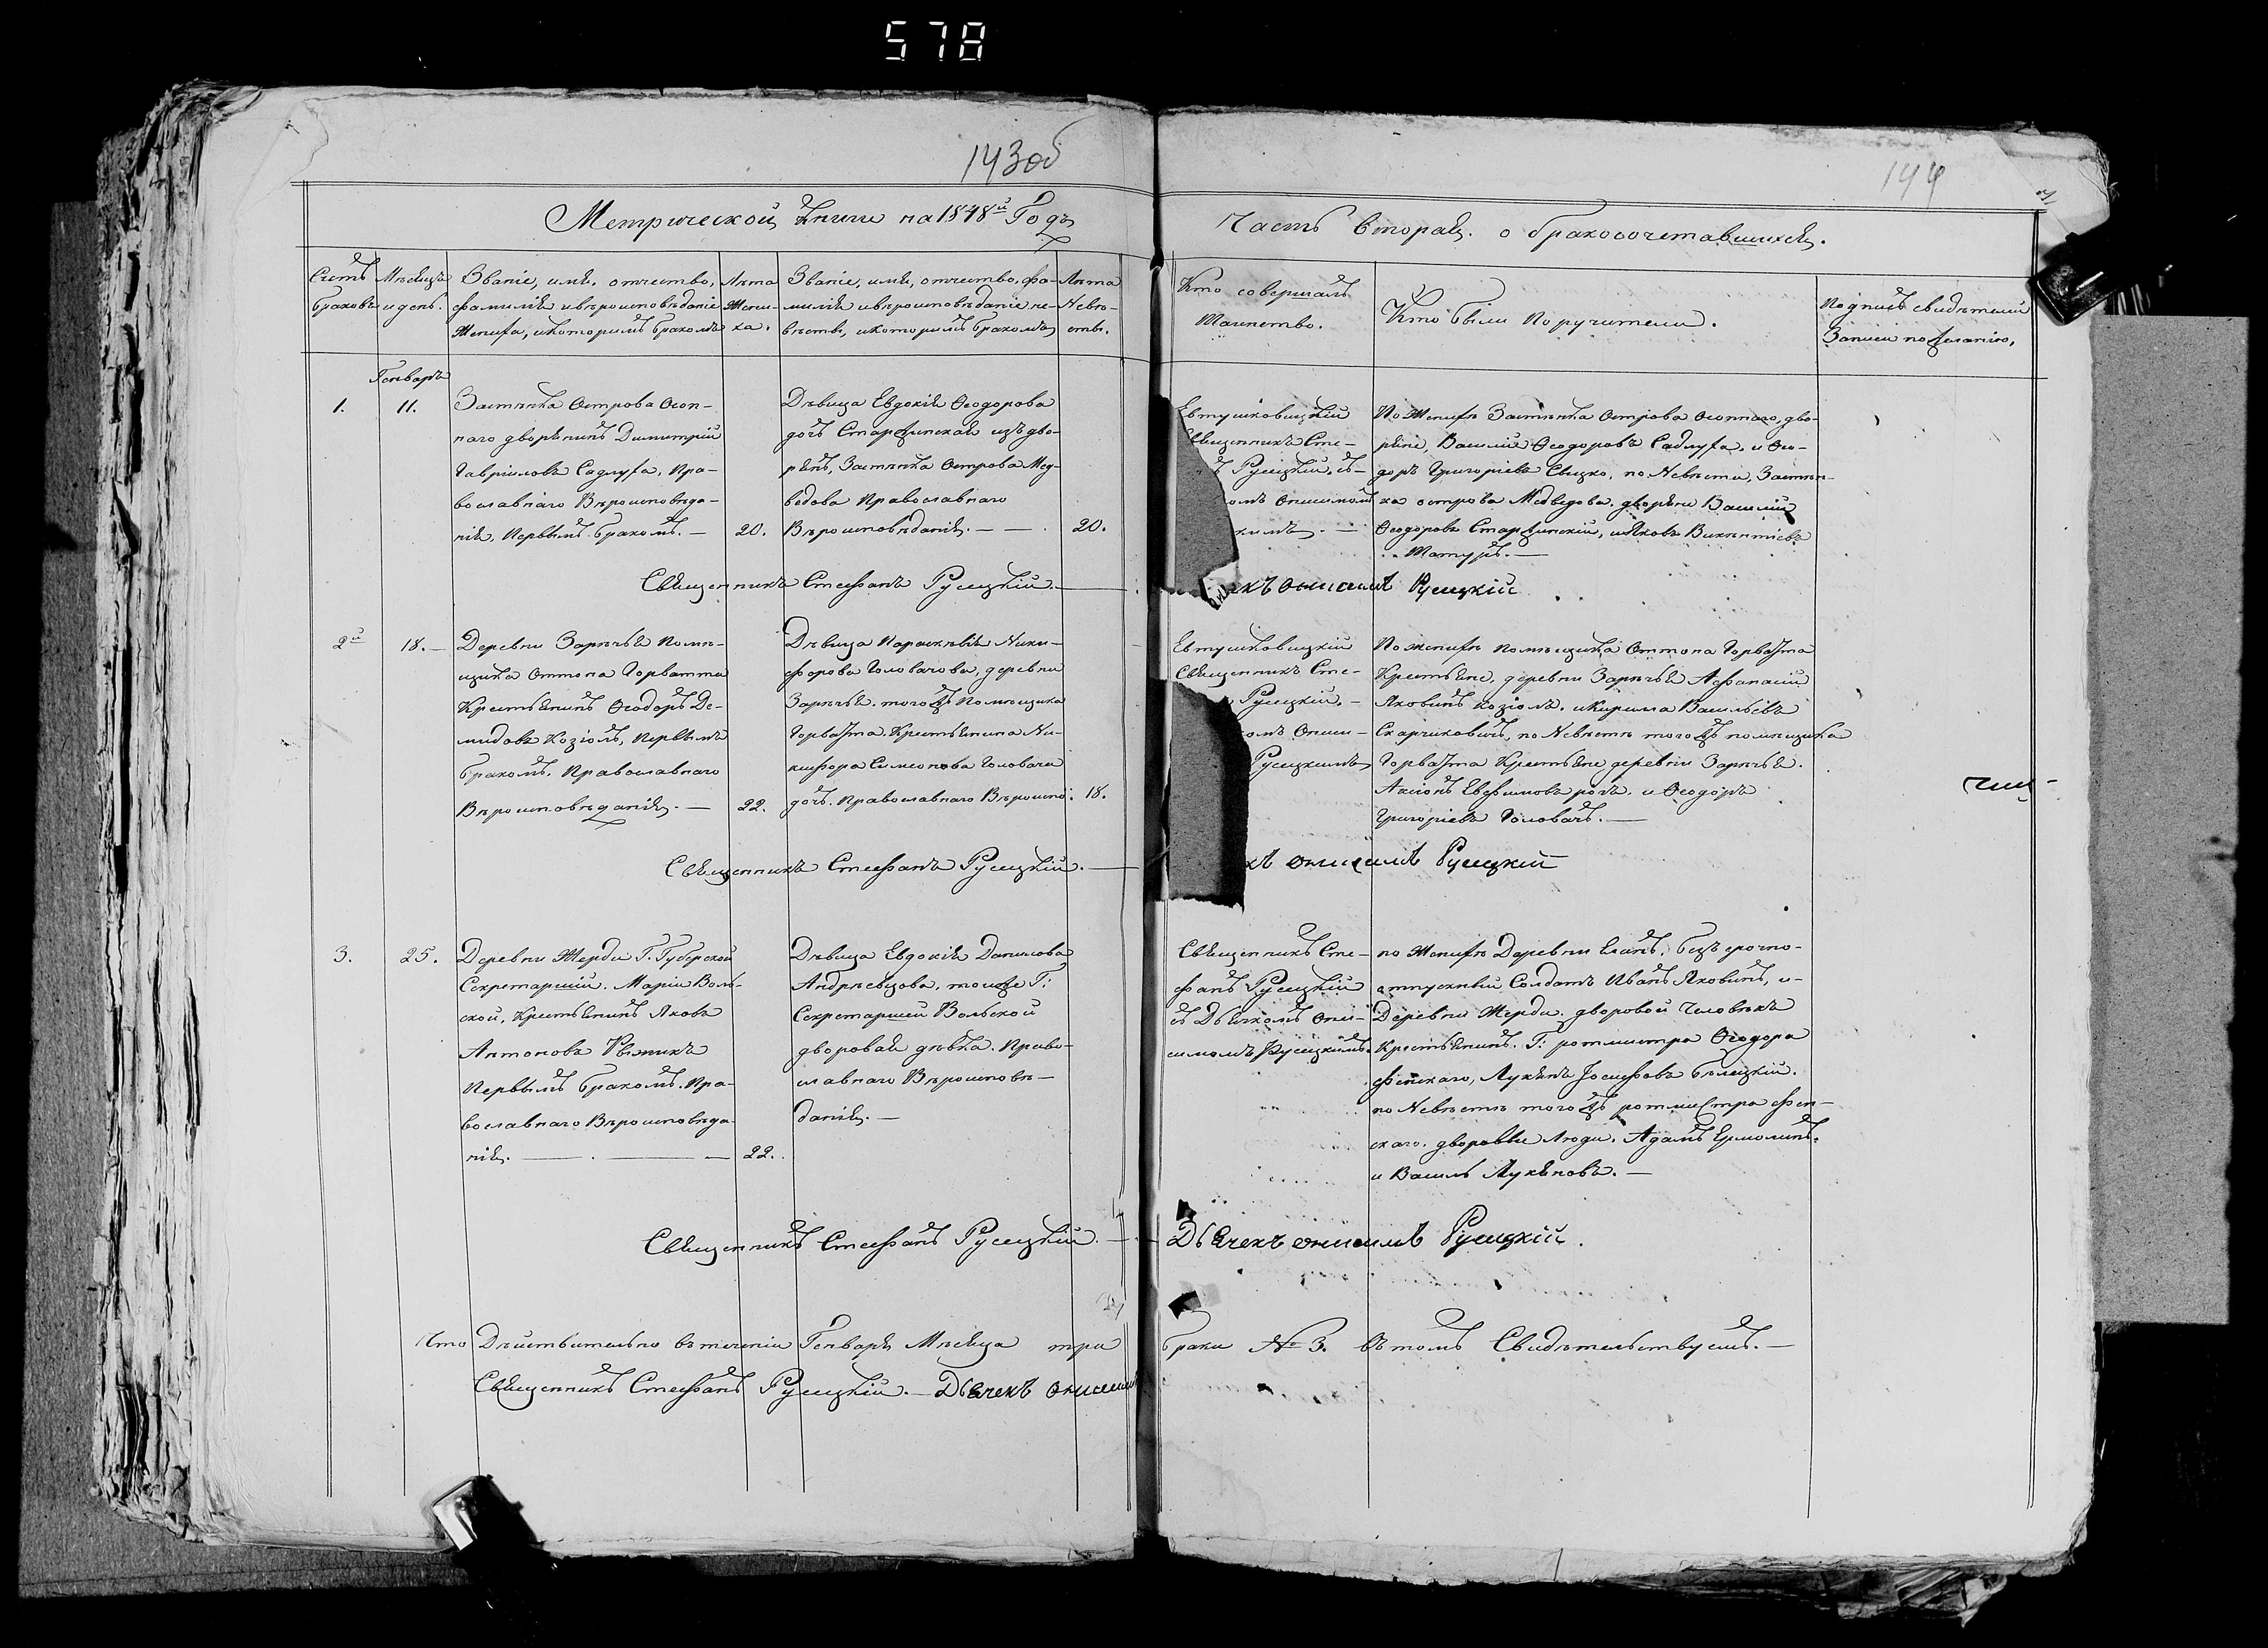 578
143об
144
Метрической Книги на 1848й Годъ
Часть Вторая. о бракосочетавшихся.
Счетъ браковъ
Мѣсяцъ и день.
Званіе, имя, отчество,
фамилія и вѣроисповѣданіе
Жениха, и которымъ бракомъ
Лѣта Жени-
ха.
Званіе, имя, отчество, фа-
милія и вѣроисповѣданіе не-
вѣсты, и которымъ бракомъ
Лѣта Невѣ-
сты.
Кто совершалъ
Таинство.
Кто были Поручители.
Подпись свидѣтелей
Записи по желанію.
Генварь
1.
11.
Застѣнка Острова Осоп-
наго дворянинъ Димитрій
Гавріиловъ Садлуха, Пра-
вославнаго Вѣроисповѣда-
нія, Первымъ бракомъ. —
20.
Дѣвица Евдокія Ѳеодорова
дочь Старжинская изъ дво-
рянъ, Застѣнка Острова Мед-
ведова Православнаго
Вѣроисповѣданія. —
20.
Евтушковицкій
Священникъ Сте-
Русецкій, съ
омъ Онисимомъ
кимъ. —
По Женихѣ Застѣнка Острова Осопнаго, дво-
ряне, Василій Ѳеодоровъ Садлуха, и Ѳео-
доръ Григоріевъ Свицко, по Невѣсти, Застѣн-
ка острова Медведова, дворяне Василій
Ѳеодоровъ Старжинскій, и Яковъ Викентіевъ
Священникъ Стефанъ Русецкій. —
къ Онисимъ Русецкій
2й
18. —
Деревни Зарѣчья Помѣ-
щика Оттона Горватта
Крестьянинъ Ѳеодоръ Де-
мидовъ Козіолъ, Первымъ
бракомъ, Православнаго
Вѣроисповѣданія. —
22.
Дѣвица Параскевія Ники-
форова Головачова, деревни
Зарѣчья, того жъ Помѣщика
Горватта, Крестьянина Ни-
кифора Симеонова Головача
дочь. Православнаго Вѣроиспо:
18.
Евтушковицкій
Священникъ Сте-
Русецкій, —
омъ Ониси-
Русецкимъ
По женихѣ помѣщика Оттона Горватта
Крестьяне, деревни Зарѣчья Афанасій
Яковинъ Козіолъ, и Кирила Васильевъ
Скарчиковичъ, по Невѣстѣ того жъ помѣщика
Горватта Крестьяне деревни Зарѣчья.
Аксіонъ Евфимовъ и Ѳеодоръ
Григоріевъ Головачъ. —
Священникъ Стефанъ Русецкій. —
къ Онисимъ Русецкій
3.
25.
Деревни Жерди Г. Губерской
Секретарши. Маріи Воль-
ской, Крестьянинъ Яковъ
Антоновъ Рыжикъ
Первымъ бракомъ. Пра-
вославнаго Вѣроисповѣда-
нія. —
22.
Дѣвица Евдокія Данилова
Андрѣевцова, тоижъ Г:
Секретаршей Вольской
дворовая дѣвка. Право-
славнаго Вѣроисповѣ-
данія. —
Священникъ Сте-
фанъ Русецкій
съ Дьячкомъ Они-
симомъ Русецкимъ
по Женихѣ Деревни безсрочно-
отпускный Солдатъ Иванъ Яковинъ, и
Деревни Жерди. дворовой человѣкъ
Крестьянинъ. Г: ротмистра Ѳеодора
Фенскаго, Лукьянъ Іосифовъ Бѣлецкій.
по Невѣстѣ того жъ ротмистра Фен-
скаго. дворовые Люди. Адамъ Ермолинъ.
и Василь Лукьяновъ. —
Священникъ Стефанъ Русецкій. —
Дьячекъ Онисимъ Русецкій.
Что Дѣйствительно въ теченіи Генваря Мѣсяца три
браки № 3. Въ томъ Свидѣтельствуемъ. —
Священникъ Стефанъ Русецкій. — Дьячекъ Онисимъ